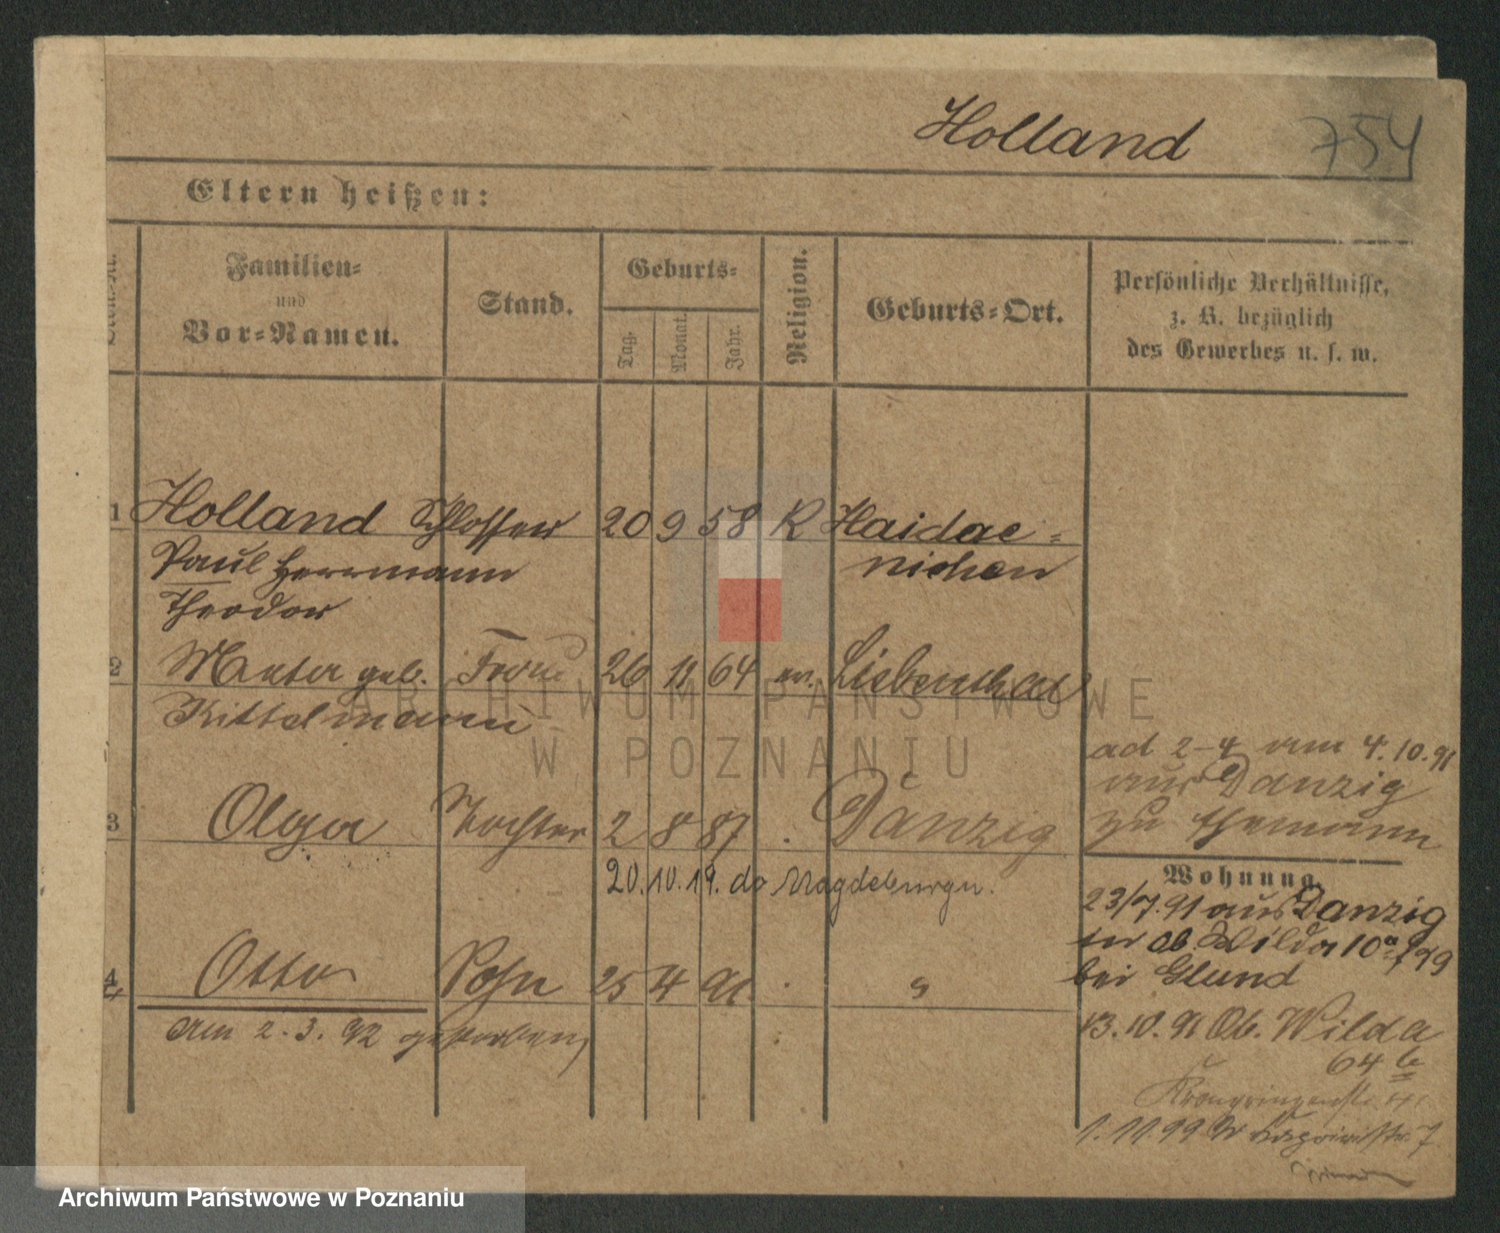 Holland 754
Eltern heißen:
Familien- und Vor-Namen.
Stand.
Geburts-
Tag. Monat. Jahr.
Religion.
Geburts-Ort.
Persönliche Verhältnisse,
z. B. bezüglich
des Gewerbes u. s. w.
1 Holland Schlosser 20 9 58 K Haidae-
Paul Herrmann nichen
Theodor
2 geb. Frau 26 11 64 ev. Liebenthal
Kittelmann
ad 2-4 am 4.10.91
aus Danzig
zu Ehemann
3 Olga Tochter 2 8 87 Danzig
20.10.19. do Magdeburgu.
Wohnung.
23/7.91 aus Danzig
in Ob. Wilda 10a
bei Glund
4 Otto Sohn 25 4 91 "
am 2.3.92 gestorben,
13.10.91 Ob. Wilda
64 b
Kronprinzenstr.
1.11.99 7
ARCHIWUM PAŃSTWOWE
W POZNANIU
Archiwum Państwowe w Poznaniu